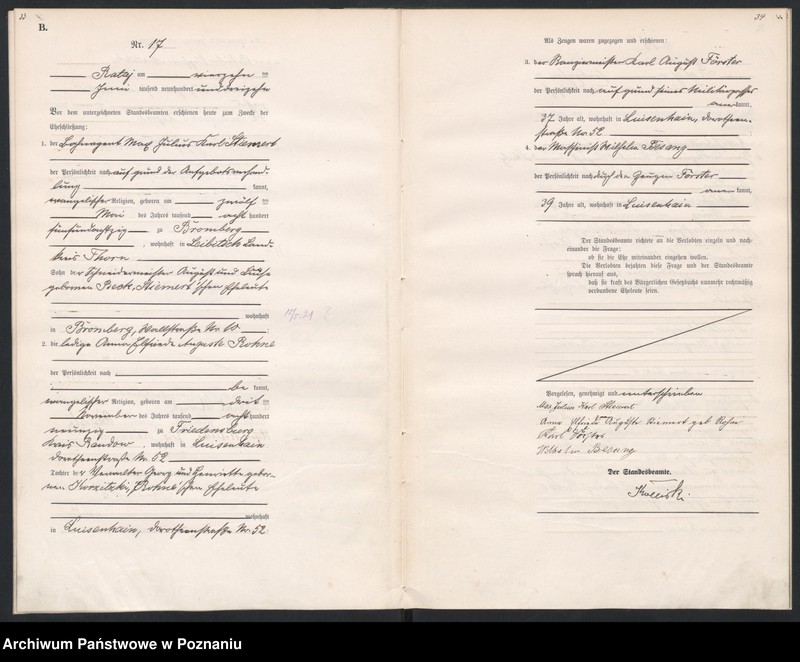 33
B.
Nr. 17
Rataj am vierzehn ten
Juni tausend neunhundert und dreizehn
Vor dem unterzeichneten Standesbeamten erschienen heute zum Zwecke der
Eheschließung:
1. der Max Julius Karl Stiemert
der Persönlichkeit nach auf Grund der Aufgebotsverhand-
lung kannt,
evangelischer Religion, geboren am zwölf ten
Mai des Jahres tausend acht hundert
fünfundachtzig zu Bromberg
, wohnhaft in Leibitsch Land-
kreis Thorn
Sohn der Schneidermeister August und Luise
geborenen Beck, Stiemert'schen Eheleute
wohnhaft
in Bromberg, Wallstraße Nr. 10
2. die ledige Anna Elfriede Auguste Rohne
der Persönlichkeit nach
be kannt,
evangelischer Religion, geboren am drit ten
November des Jahres tausend acht hundert
neunzig zu Friedensburg
Kreis Randow, wohnhaft in Luisenhain
Dorotheenstraße Nr. 52
Tochter der Verwalter Georg und Henriette gebore-
nen Rohne'schen Eheleute
wohnhaft
in Luisenhain, Dorotheenstraße Nr. 52
34
Als Zeugen waren zugezogen und erschienen:
3. der Karl August Förster
der Persönlichkeit nach auf Grund seines Militärpasses
aner kannt,
37 Jahre alt, wohnhaft in Luisenhain, Dorotheen-
straße No. 52
4. der Maschinist Wilhelm
der Persönlichkeit nach durch den Zeugen Förster
aner kannt,
39 Jahre alt, wohnhaft in Luisenhain
Der Standesbeamte richtete an die Verlobten einzeln und nach-
einander die Frage:
ob sie die Ehe miteinander eingehen wollen.
Die Verlobten bejahten diese Frage und der Standesbeamte
sprach hierauf aus,
daß sie kraft des Bürgerlichen Gesetzbuchs nunmehr rechtmäßig
verbundene Eheleute seien.
Vorgelesen, genehmigt und unterschrieben
Max Julius Karl Stiemert
Anna Elfriede Auguste Stiemert geb Rohne
Karl Förster
Wilhelm
Der Standesbeamte.
Archiwum Państwowe w Poznaniu